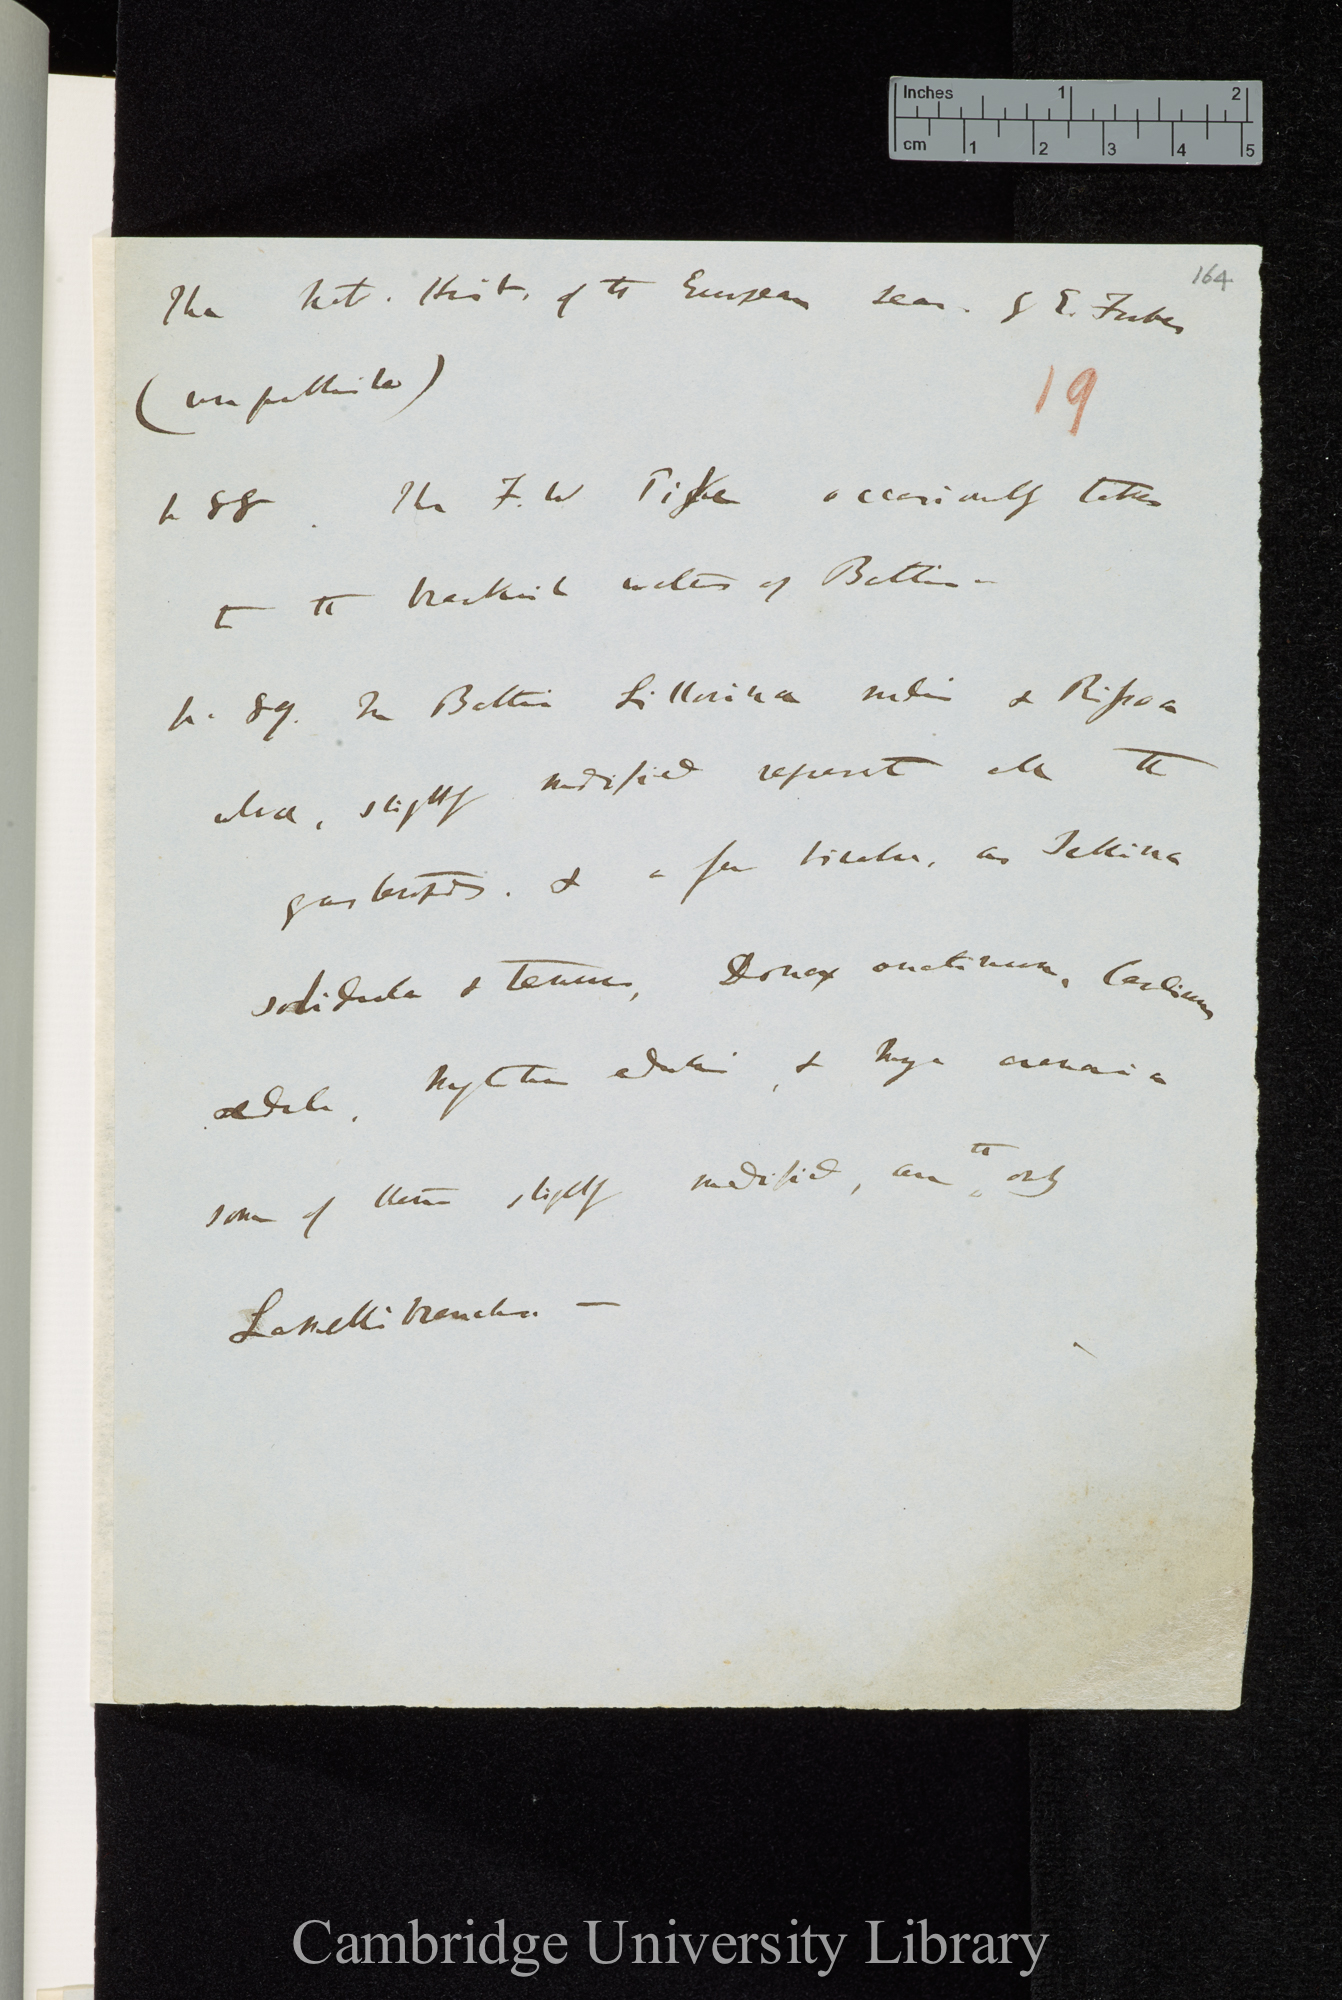 Inches 1 2
cm 1 2 3 4 5
164
The Nat. Hist. of the European Seas. by E. Forbes
(unpublished)
19
p 88. The F. W Pike occasionally takes
to the brackish waters of Baltic –
p. 89. In Baltic Littorina rudis & Rissoa
ulvæ, slightly modified represent all the
gasteropods. & a few bivalves, as Tellina
solidula & tenuis, Donax anatinum, Cardium
edule, Mytilus edulis, & Mya arenaria
some of them slightly modified, are the only
Lamellibranchs —
Cambridge University Library